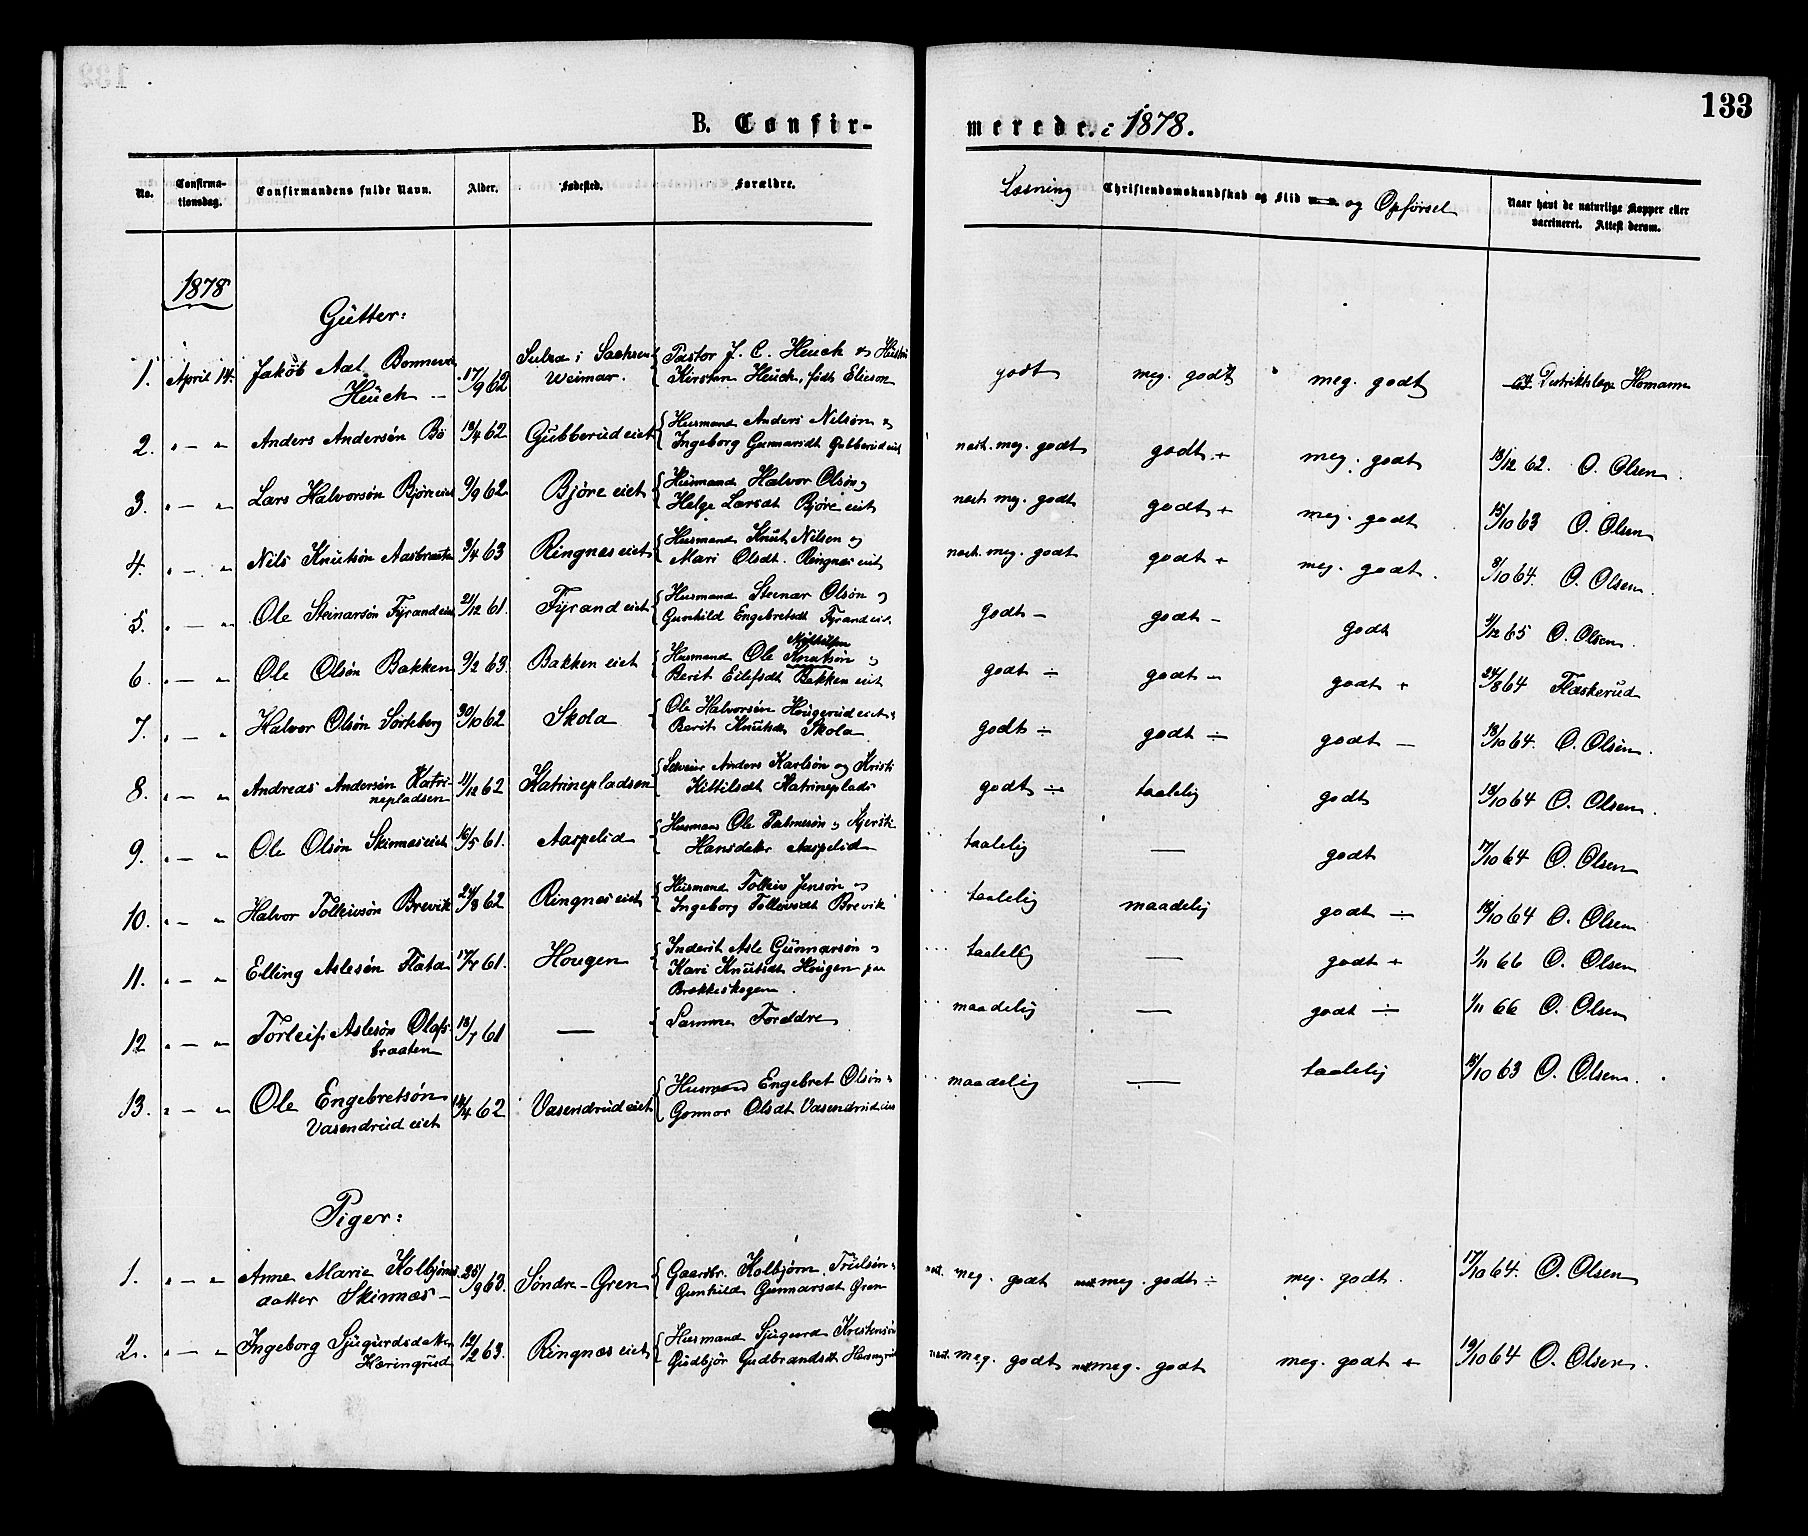 133
B. Confir-
merede. i 1878.
No. Confirma-tionsdag. Confirmandens fulde Navn. Alder. Fødested. Forældre. Læsning Christendomskundskab og Flid og Opførsel Naar havt de naturlige Kopper eller vaccineret. Attest derom.
1878
Gutter:
1. April 14. Jakob Aal Bonnevie Heuch 17/9 62 Sulza i Sachsen Weimar. Pastor J. C. Heuch & Hustru Kirsten Heuch, født Elieson godt meg. godt meg. godt Distriktslæge Homann
2. " — " Anders Andersøn Bö 13/4 62 Gubberud eiet Husmand Anders Nilsøn & Ingeborg Gunnarsdt Gubberud eiet næst. meg. godt godt + meg. godt 18/12 62. O. Olsen.
3. " — " Lars Halvorsøn Björe eiet 9/9 62 Björe eiet Husmand Halvor Olsøn & Helge Larsdt Björe eiet næst. meg. godt godt + meg. godt 15/10 63 O. Olsen
4. " — " Nils Knutsøn Aasbraaten 3/4 63 Ringnæs eiet Husmand Knut Nilsen og Mari Olsdt. Ringnæs eiet næst. meg. godt godt + meg. godt. 8/10 64. O. Olsen.
5. " — " Ole Steinarsøn Fyrand eiet 21/12 61. Fyrand eiet Husmand Steinar Olsøn & Gunhild Engebretsdt Fyrand eiet. godt - godt - godt 1/12 65 O. Olsen.
6. " — " Ole Olsøn Bakken 9/2 63. Bakken eiet Husmand Ole Knutsøn & Berit Eilefsdt Bakken eiet godt ÷ godt - godt + 24/8 64 Flaskerud
7. " — " Halvor Olsøn Sorteberg 30/10 62 Skola Ole Halvorsøn Hougerud eiet & Berit Knutsdt Skola godt ÷ godt ÷ godt — 18/10 64. O. Olsen.
8. " — " Andreas Andersøn Katrinepladsen 11/12 62 Katrinepladsen Anders Karlsøn og Kristi Kittilsdt Katrineplads godt ÷ taalelig godt 18/10 64 O. Olsen.
9. " — " Ole Olsøn Skinnæs eiet 16/5 61. Aaspelid Husmand Ole Palmesøn & Kjersti Hansdatter Aaspelid taalelig — godt 17/10 64 O. Olsen
10. " — " Halvor Tolleivsøn Brevik 24/8 62 Ringnæs eiet Husmand Tolleiv Jensøn & Ingeborg Tollevsdt Brevik taalelig maadelig godt ÷ 18/10 64 O. Olsen.
11. " — " Elling Aslesøn Flata 17/7 61. Hougen Inderst Asle Gunnarsøn & Kari Knutsdt Hougen paa Brekkeskogen. taalelig — godt + 1/11 66 O. Olsen
12 " — " Torleif Aslesøn Olafsbraaten 18/7 61 — Samme Forældre maadelig — godt ÷ 1/11 66 O. Olsen
13. " — " Ole Engebretsøn Vasendrud eiet 14/4 62 Vasendrud eiet Husmand Engebret Olsøn & Gonnor Olsdt Vasendrud eiet maadelig — taalelig 15/10 63 O. Olsen.
Piger:
1. " — " Anne Marie Kolbjørnsdatter Skinnæs 25/9 63. Søndre-Gren Gaardbr. Kolbjørn Trulsøn & Gunhild Gunnarsdt Gren næst. meg. godt næst meg. godt ÷ meg. godt. 17/10 64. O. Olsen
2. " — " Ingeborg Sjugurdsdatter Haringrud 12/2 63. Ringnæs eiet Husmand Sjugurd Kristensøn Gudbjør Gudbrandsdt næst. meg. godt næst meg. godt meg. godt + 19/10 64 O. Olsen.